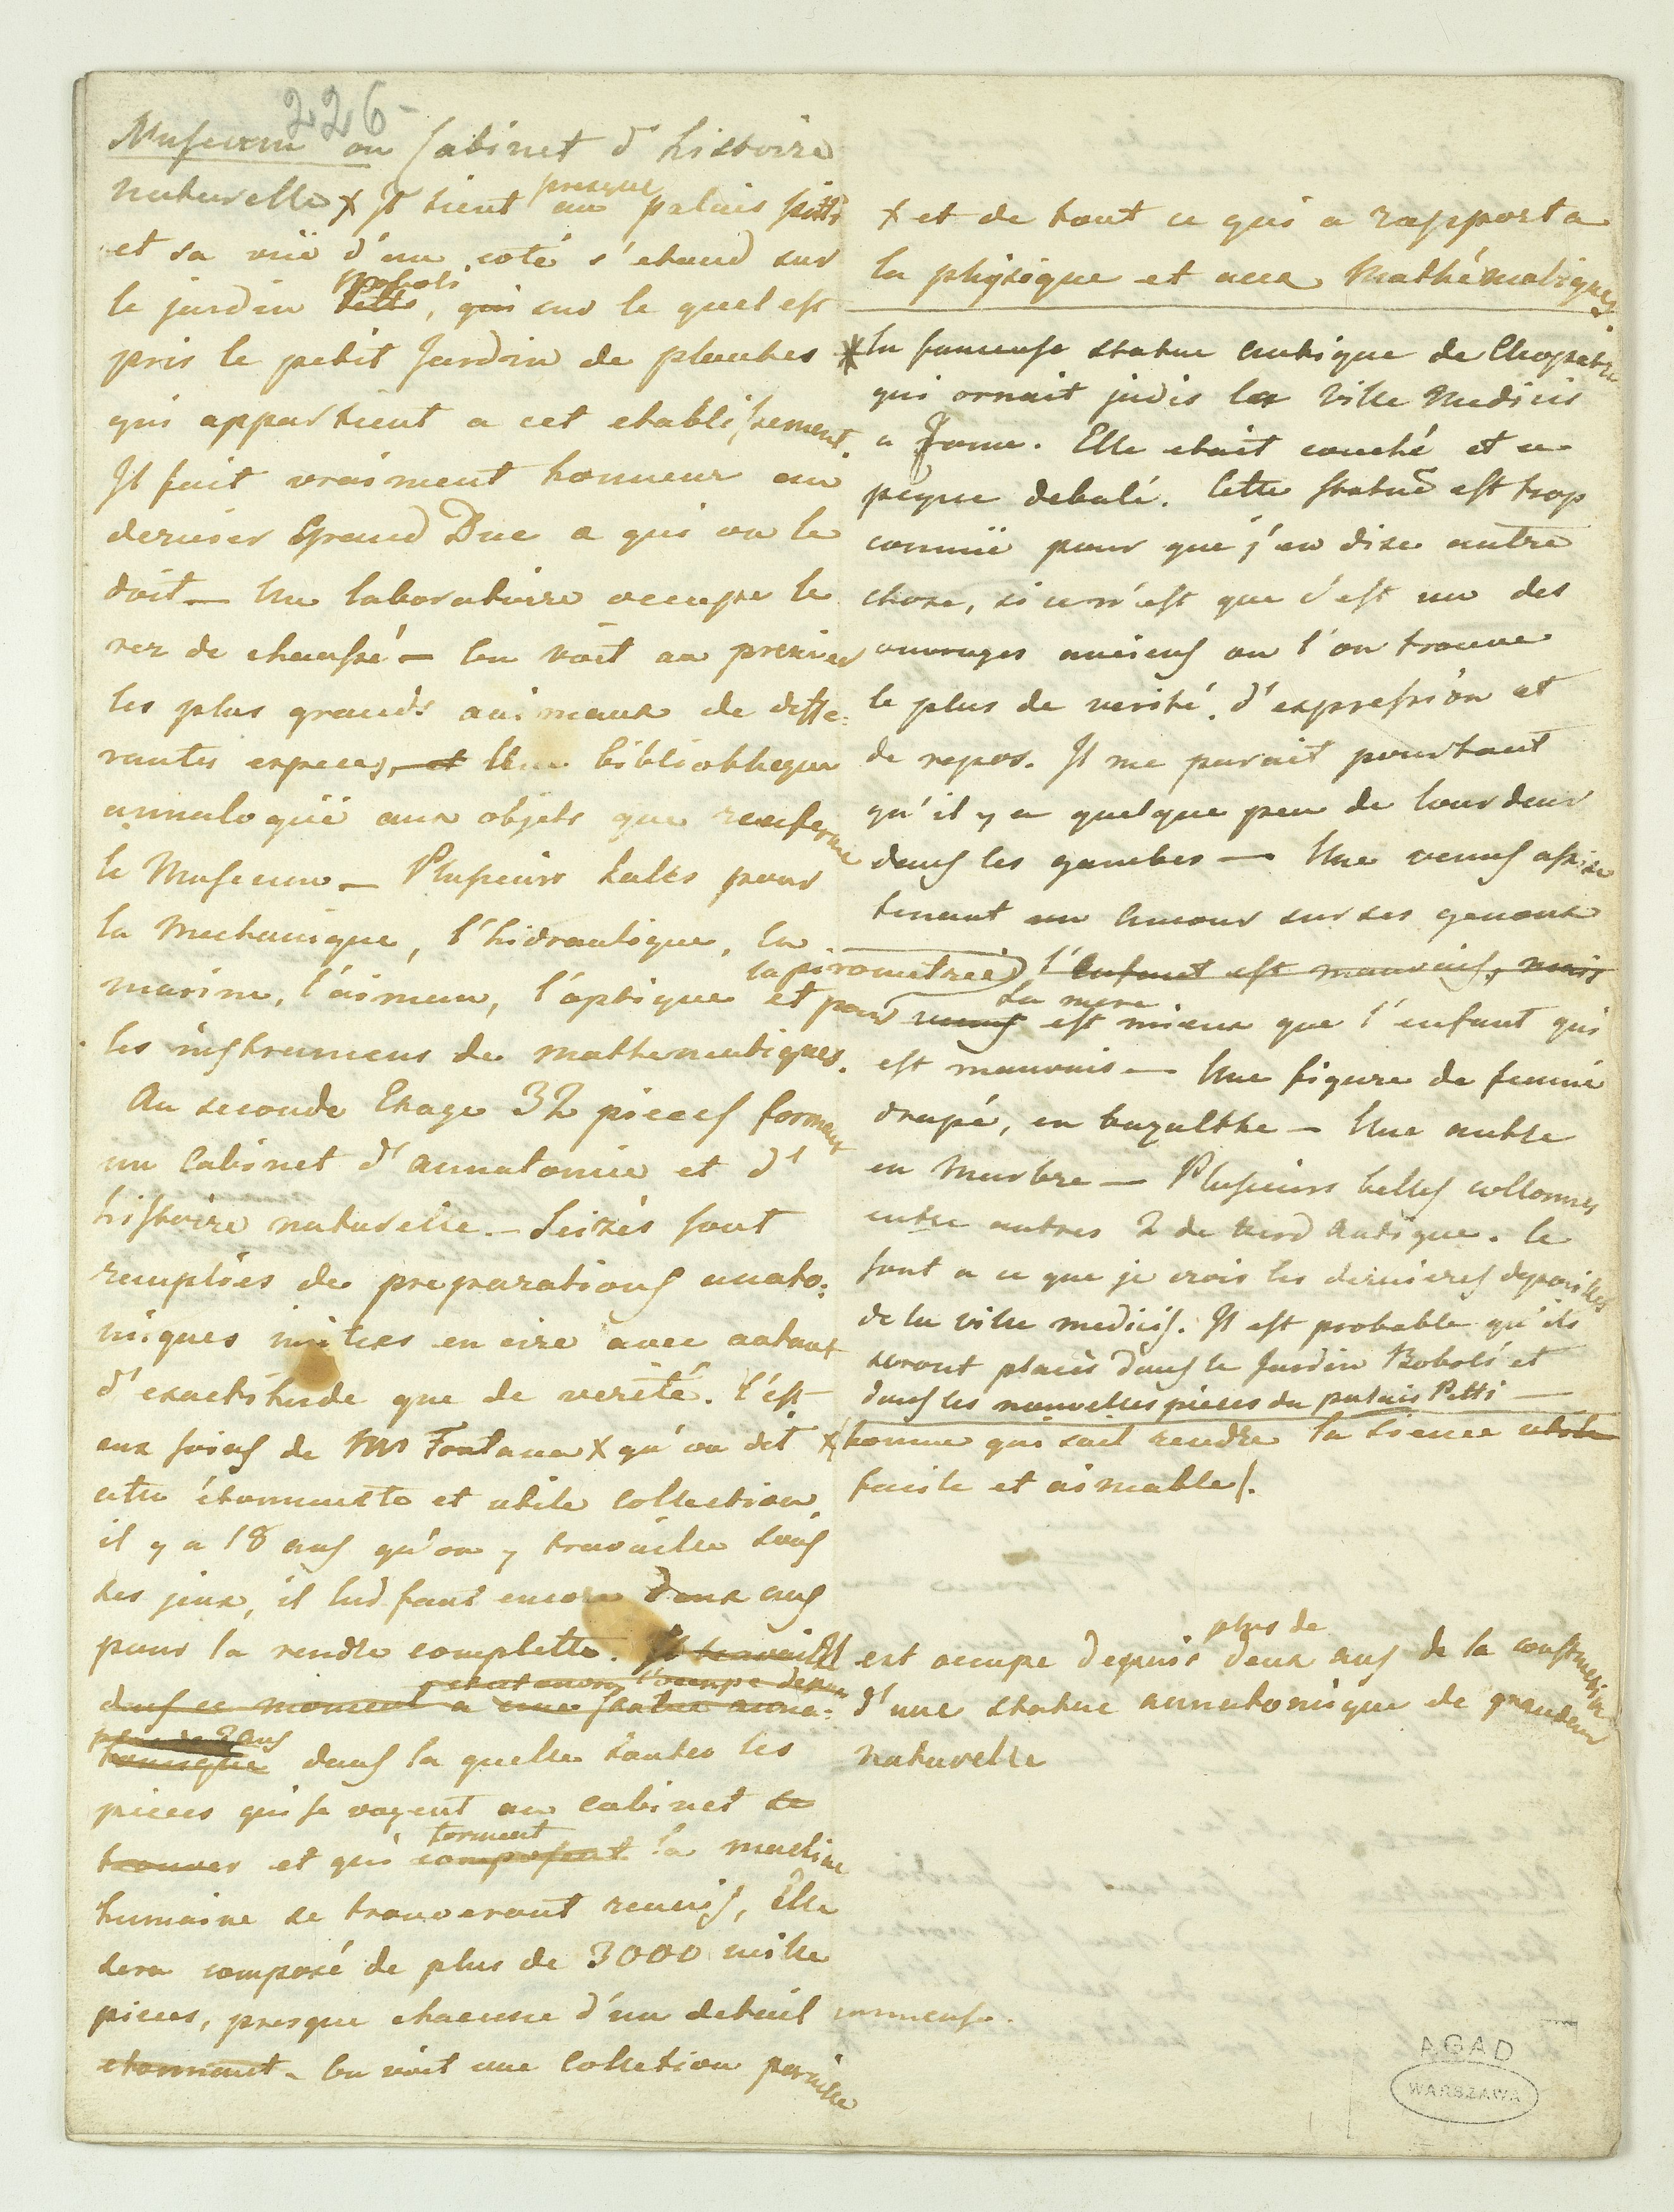 226-
Museum ou Cabinet d'histoire
naturelle x Il tient presque au palais pitti
et sa vuë d'un coté s'etand sur
le jardin Pitti Boboli, qui sur le quel est
pris le petit Jardin de plantes
qui appartient a cet etablissement.
Il fait vraiment honneur au
dernier Grand Duc a qui on le
doit — Un laboratoire occupe le
rez de chaussé — On voit au premier
les plus grands animaux de diffe:
rantes especes, et Une bibliotheque
annalogüë aux objets que renferme
le Museum — Plusieurs sales pour
la Mechanique, l'hidraulique, la
marine, l'aiman, l'optique la pirometrie) et pour
les instrumens de mathematiques.
Au seconde Etage 32 pieces forment
un Cabinet d'annatomie et d'
histoire naturelle — Seizes sont
remplies de preparations anato:
miques imitées en cire avec autant
d'exactitude que de verité. C'est
aux soins de Mr Fontana x qu'on doit
cette étonnante et utile collection,
il y a 18 ans qu'on y travaille sous
ses jeux, il lui faut encore deux ans
pour la rendre complette. Il travaille Il
dans ce moment a une statue anna:
tomique dans la quelle toutes les
pieces qui se voyent au cabinet se
trouver et qui composent forment la machine
humaine se trouveront reunis, Elle
sera composé de plus de 3000 mille
pieces, presque chacune d'un detail immense.
etonnant — On voit une Colletion pareille
x et de tout ce qui a rapport a
la phisique et aux Mathématiques.
* la fameuse statue antique de Cleopatre
qui ornait jadis la Ville Medicis
a Rome. Elle etait couché et a
peque debalé. Cette statue est trop
connüe pour que j'en dise autre
chose, si ce n'est que c'est un des
ouvrages anciens ou l'on trouve
le plus de verité, d'expression et
de repos. Il me parait pourtant
qu'il y a quelque peu de lourdeur
dans les gambes — Une venus assise
tenant un Amour sur ses genoux
l'Enfant est mauvais, mais
venus la mere est mieux que l'enfant qui
est mauvais — Une figure de femme
drapé, en bazalthe — Une autre
en Marbre — Plusieurs belles collonnes
entre autres 2 de verd Antique. Ce
sont a ce que je crois les dernieres depouilles
de la ville medicis. Il est probable qu'ils
seront placés dans le Jardin Boboli et
dans les nouvelles pieces du palais Pitti —
x (homme qui sait rendre la sience utile
facile et aimable).
est occupe depuis plus de deux ans de la construction
d'une statue annatomique de grandeur
naturelle
AGAD
WARSZAWA